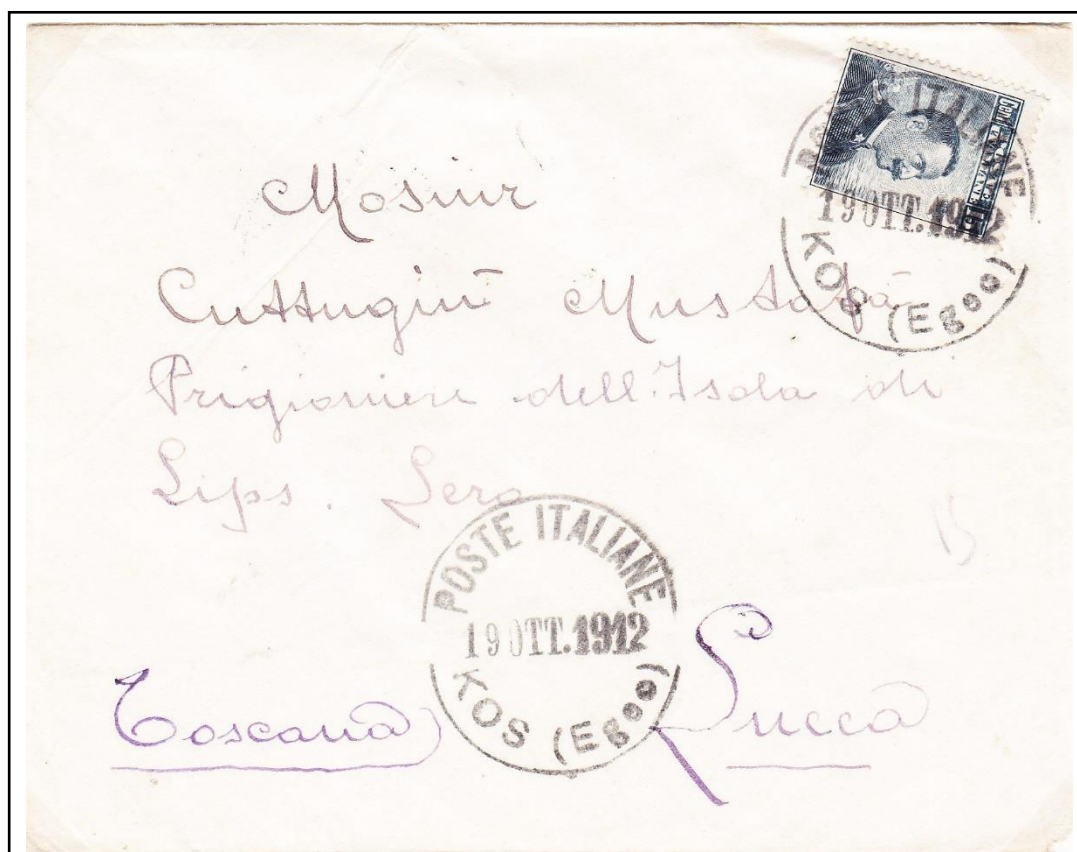 POSTE ITALIANE
19 OTT. 1912
KOS (Egeo)
Mosiur
Cuttugiū Mustafà
Prigioniere dell'Isola di
Lips. Lero
POSTE ITALIANE
19 OTT. 1912
KOS (Egeo)
(Toscana) Lucca